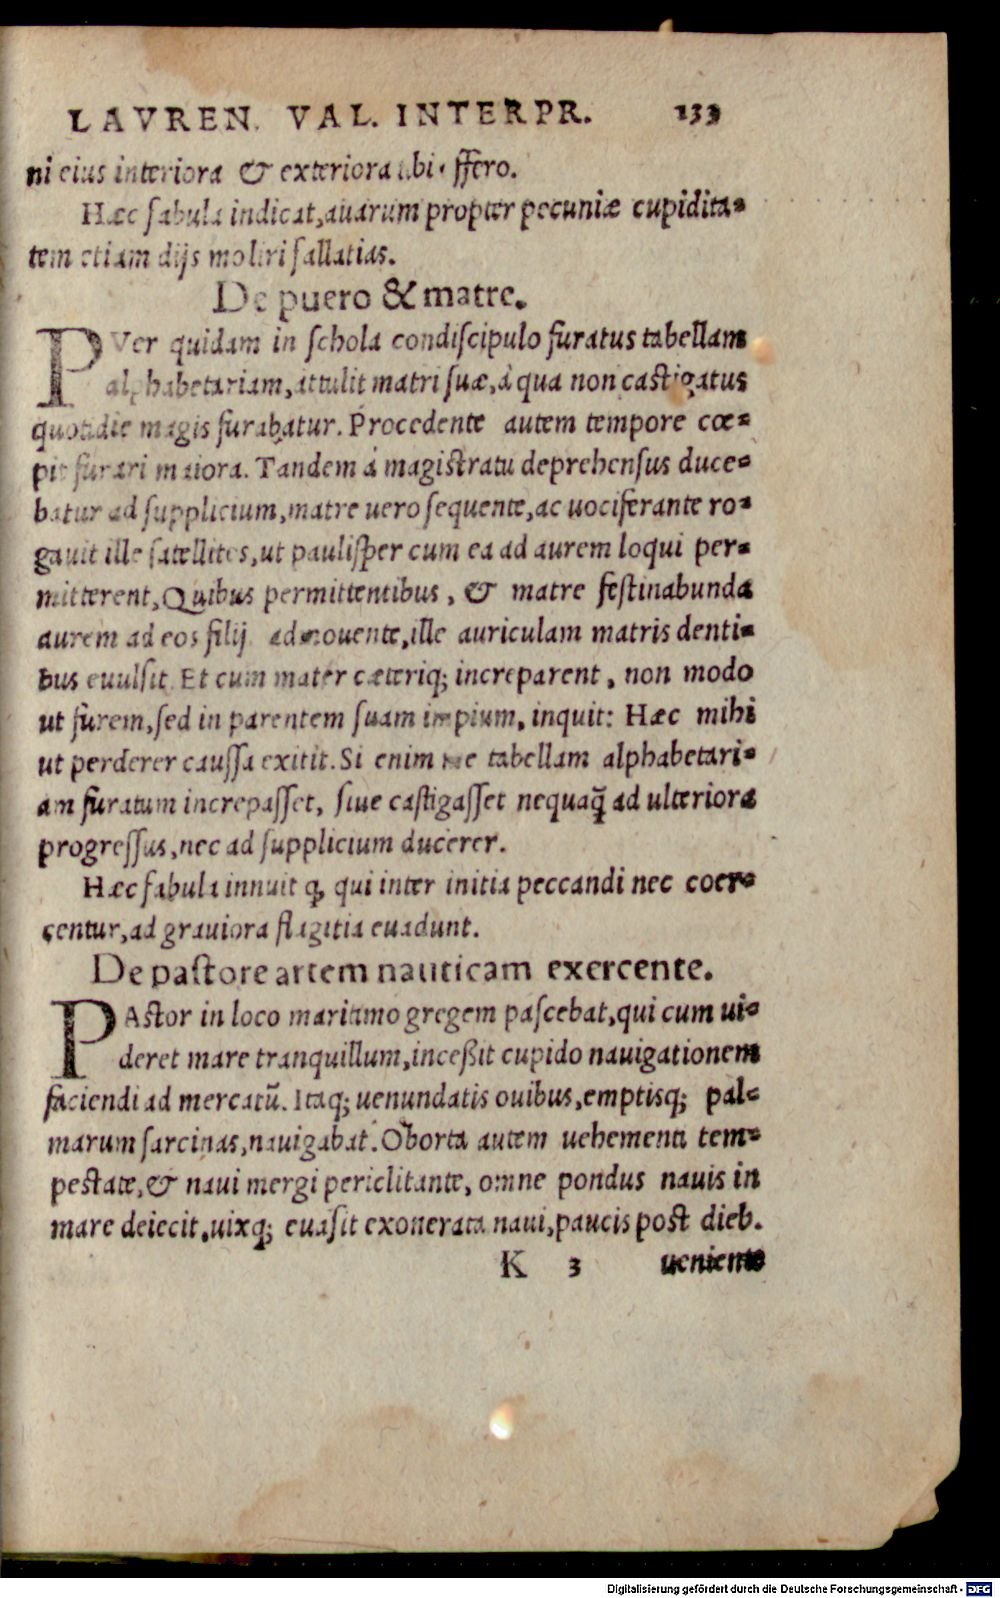 LAVREN. VAL. INTERPR. 133
ni eius interiora & exteriora tibi offero.
Hæc fabula indicat, auarum propter pecuniæ cupidita-
tem etiam dijs moliri fallatias.
De puero & matre.
PVer quidam in schola condiscipulo furatus tabellam
alphabetariam, attulit matri suæ, á qua non castigatus
quotidie magis furabatur. Procedente autem tempore cœ-
pit furari maiora. Tandem á magistratu deprehensus duce-
batur ad supplicium, matre uero sequente, ac uociferante ro-
gauit ille satellites, ut paulisper cum ea ad aurem loqui per-
mitterent, Quibus permittentibus, & matre festinabunda
aurem ad eos filij admouente, ille auriculam matris denti-
bus euulsit. Et cum mater cæteriq; increparent, non modo
ut furem, sed in parentem suam impium, inquit: Hæc mihi
ut perderer caussa exitit. Si enim me tabellam alphabetari-
am furatum increpasset, siue castigasset nequaq̃ ad ulteriora
progressus, nec ad supplicium ducerer.
Hæc fabula innuit ꝙ, qui inter initia peccandi nec coer-
centur, ad grauiora flagitia euadunt.
De pastore artem nauticam exercente.
PAstor in loco maritimo gregem pascebat, qui cum ui-
deret mare tranquillum, inceßit cupido nauigationem
faciendi ad mercatũ. Itaq; uenundatis ouibus, emptisq; pal-
marum sarcinas, nauigabat. Oborta autem uehementi tem-
pestate, & naui mergi periclitante, omne pondus nauis in
mare deiecit, uixq; euasit exonerata naui, paucis post dieb.
K 3 ueniente
Digitalisierung gefördert durch die Deutsche Forschungsgemeinschaft - DFG